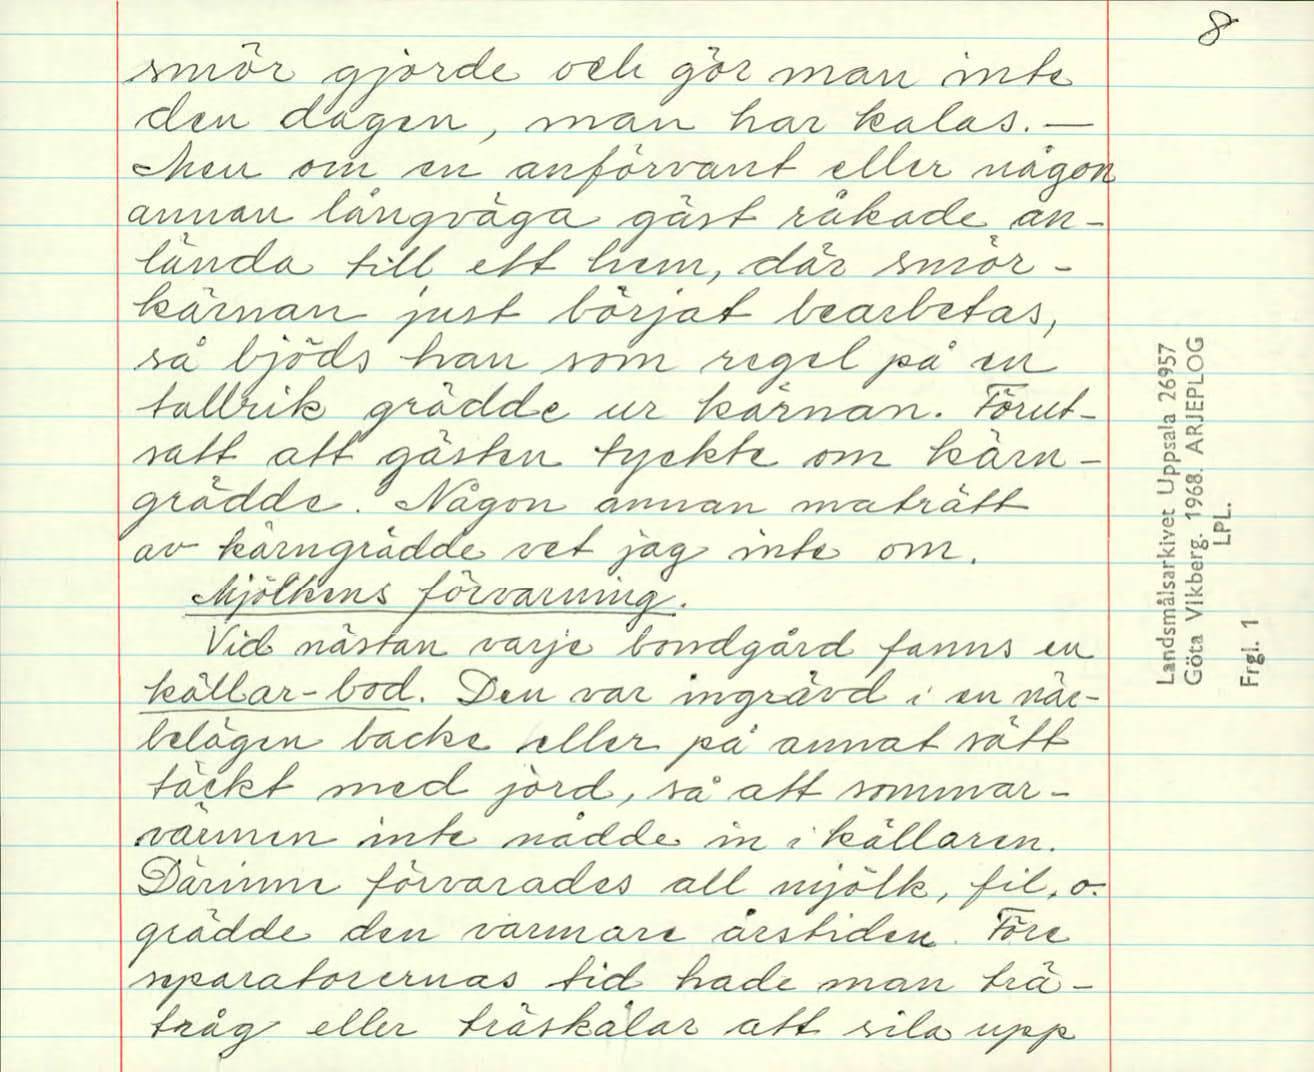 8
smör gjorde och gör man inte
den dagen, man har kalas. —
Men om en anförvant eller någon
annan långväga gäst råkade an-
lända till ett hem, där smör-
kärnan just börjat bearbetas,
så bjöds han som regel på en
tallrik grädde ur kärnan. Förut-
satt att gästen tyckte om kärn-
grädde. Någon annan maträtt
av kärngrädde vet jag inte om.
Mjölkens förvarning.
Vid nästan varje bondgård fanns en
källar-bod. Den var ingrävd i en när-
belägen backe eller på annat sätt
täckt med jord, så att sommar-
värmen inte nådde in i källaren.
Därinne förvarades all mjölk, fil, o.
grädde den varmare årstiden. Före
separatorernas tid hade man trä-
tråg eller träskålar att sila upp
Landsmålsarkivet Uppsala 26957
Göta Vikberg. 1968. ARJEPLOG
LPL.
Frgl. 1